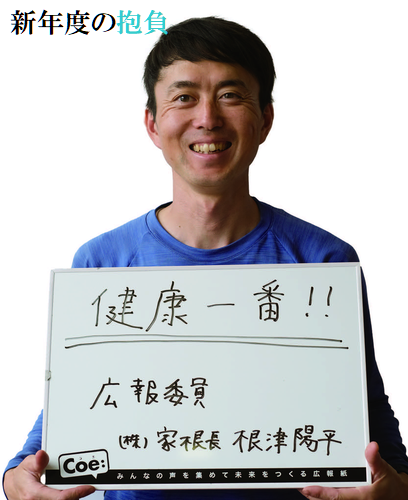 新年度の抱負
健康一番!!
広報委員
(株)家根長 根津陽平
Coe:
みんなの声を集めて未来をつくる広報紙